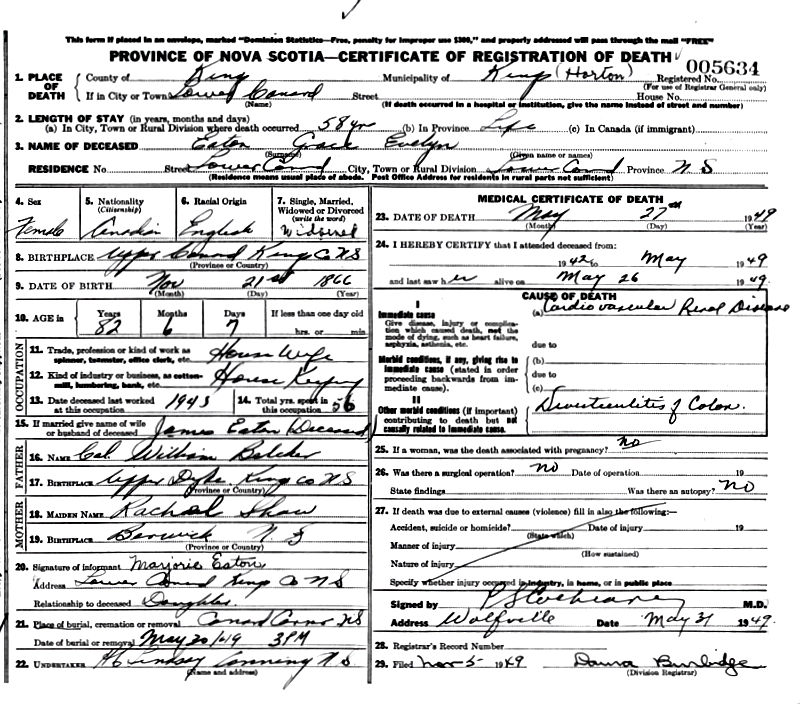 This form if placed in an envelope, marked "Dominion Statistics—Free, penalty for improper use $300," and properly addressed will pass through the mail "FREE"
PROVINCE OF NOVA SCOTIA—CERTIFICATE OF REGISTRATION OF DEATH
005634
1. PLACE OF DEATH County of Kings Municipality of Kings (Horton) Registered No.
(For use of Registrar General only)
If in City or Town Lower Canard Street House No.
(Name) (If death occurred in a hospital or institution, give the name instead of street and number)
2. LENGTH OF STAY (in years, months and days)
(a) In City, Town or Rural Division where death occurred 58 yrs (b) In Province Life (c) In Canada (if immigrant)
3. NAME OF DECEASED Eaton Grace Evelyn
(Surname) (Given name or names)
RESIDENCE No Street Lower Canard City, Town or Rural Division Lower Canard Province N S
(Residence means usual place of abode. Post Office Address for residents in rural parts not sufficient)
4. Sex Female
5. Nationality (Citizenship) Canadian
6. Racial Origin English
7. Single, Married, Widowed or Divorced (write the word) Widowed
8. BIRTHPLACE Upper Canard Kings Co NS
(Province or Country)
9. DATE OF BIRTH Nov 21st 1866
(Month) (Day) (Year)
10. AGE in Years 82 Months 6 Days 7 If less than one day old hrs. or min
OCCUPATION
11. Trade, profession or kind of work as spinner, teamster, office clerk, etc. House Wife
12. Kind of industry or business, as cotton-mill, lumbering, bank, etc. House Keeping
13. Date deceased last worked at this occupation 1943 14. Total yrs. spent in this occupation 56
15. If married give name of wife or husband of deceased James Eaton (Deceased)
FATHER
16. Name William
17. BIRTHPLACE Upper Dyke Kings Co NS
(Province or Country)
MOTHER
18. MAIDEN NAME Rachel Shaw
19. BIRTHPLACE Berwick N S
(Province or Country)
20. Signature of informant Marjorie Eaton
Address Lower Canard Kings Co NS
Relationship to deceased Daughter
21. Place of burial, cremation or removal Canard Corner NS
Date of burial or removal May 3PM
22. UNDERTAKER Lindsay Canning N S
(Name and address)
MEDICAL CERTIFICATE OF DEATH
23. DATE OF DEATH May 27th 1949
(Month) (Day) (Year)
24. I HEREBY CERTIFY that I attended deceased from:
1942 to May 1949
and last saw her alive on May 26 1949
CAUSE OF DEATH
I
Immediate cause
Give disease, injury or complication which caused death, not the mode of dying, such as heart failure, asphyxia, asthenia, etc.
(a) Cardio vascular Renal Disease
due to
Morbid conditions, if any, giving rise to immediate cause (stated in order proceeding backwards from immediate cause).
(b)
due to
(c)
II
Other morbid conditions (if important) contributing to death but not causally related to immediate cause.
Diverticulitis of Colon.
25. If a woman, was the death associated with pregnancy? no
26. Was there a surgical operation? no Date of operation 19
State findings Was there an autopsy? no
27. If death was due to external causes (violence) fill in also the following:—
Accident, suicide or homicide? Date of injury 19
(State which)
Manner of injury
(How sustained)
Nature of injury
Specify whether injury occurred in industry, in home, or in public place
Signed by P S Cochrane M.D.
Address Wolfville Date May 31 1949.
28. Registrar's Record Number
29. Filed Nov 5 1949 Burbidge
(Division Registrar)